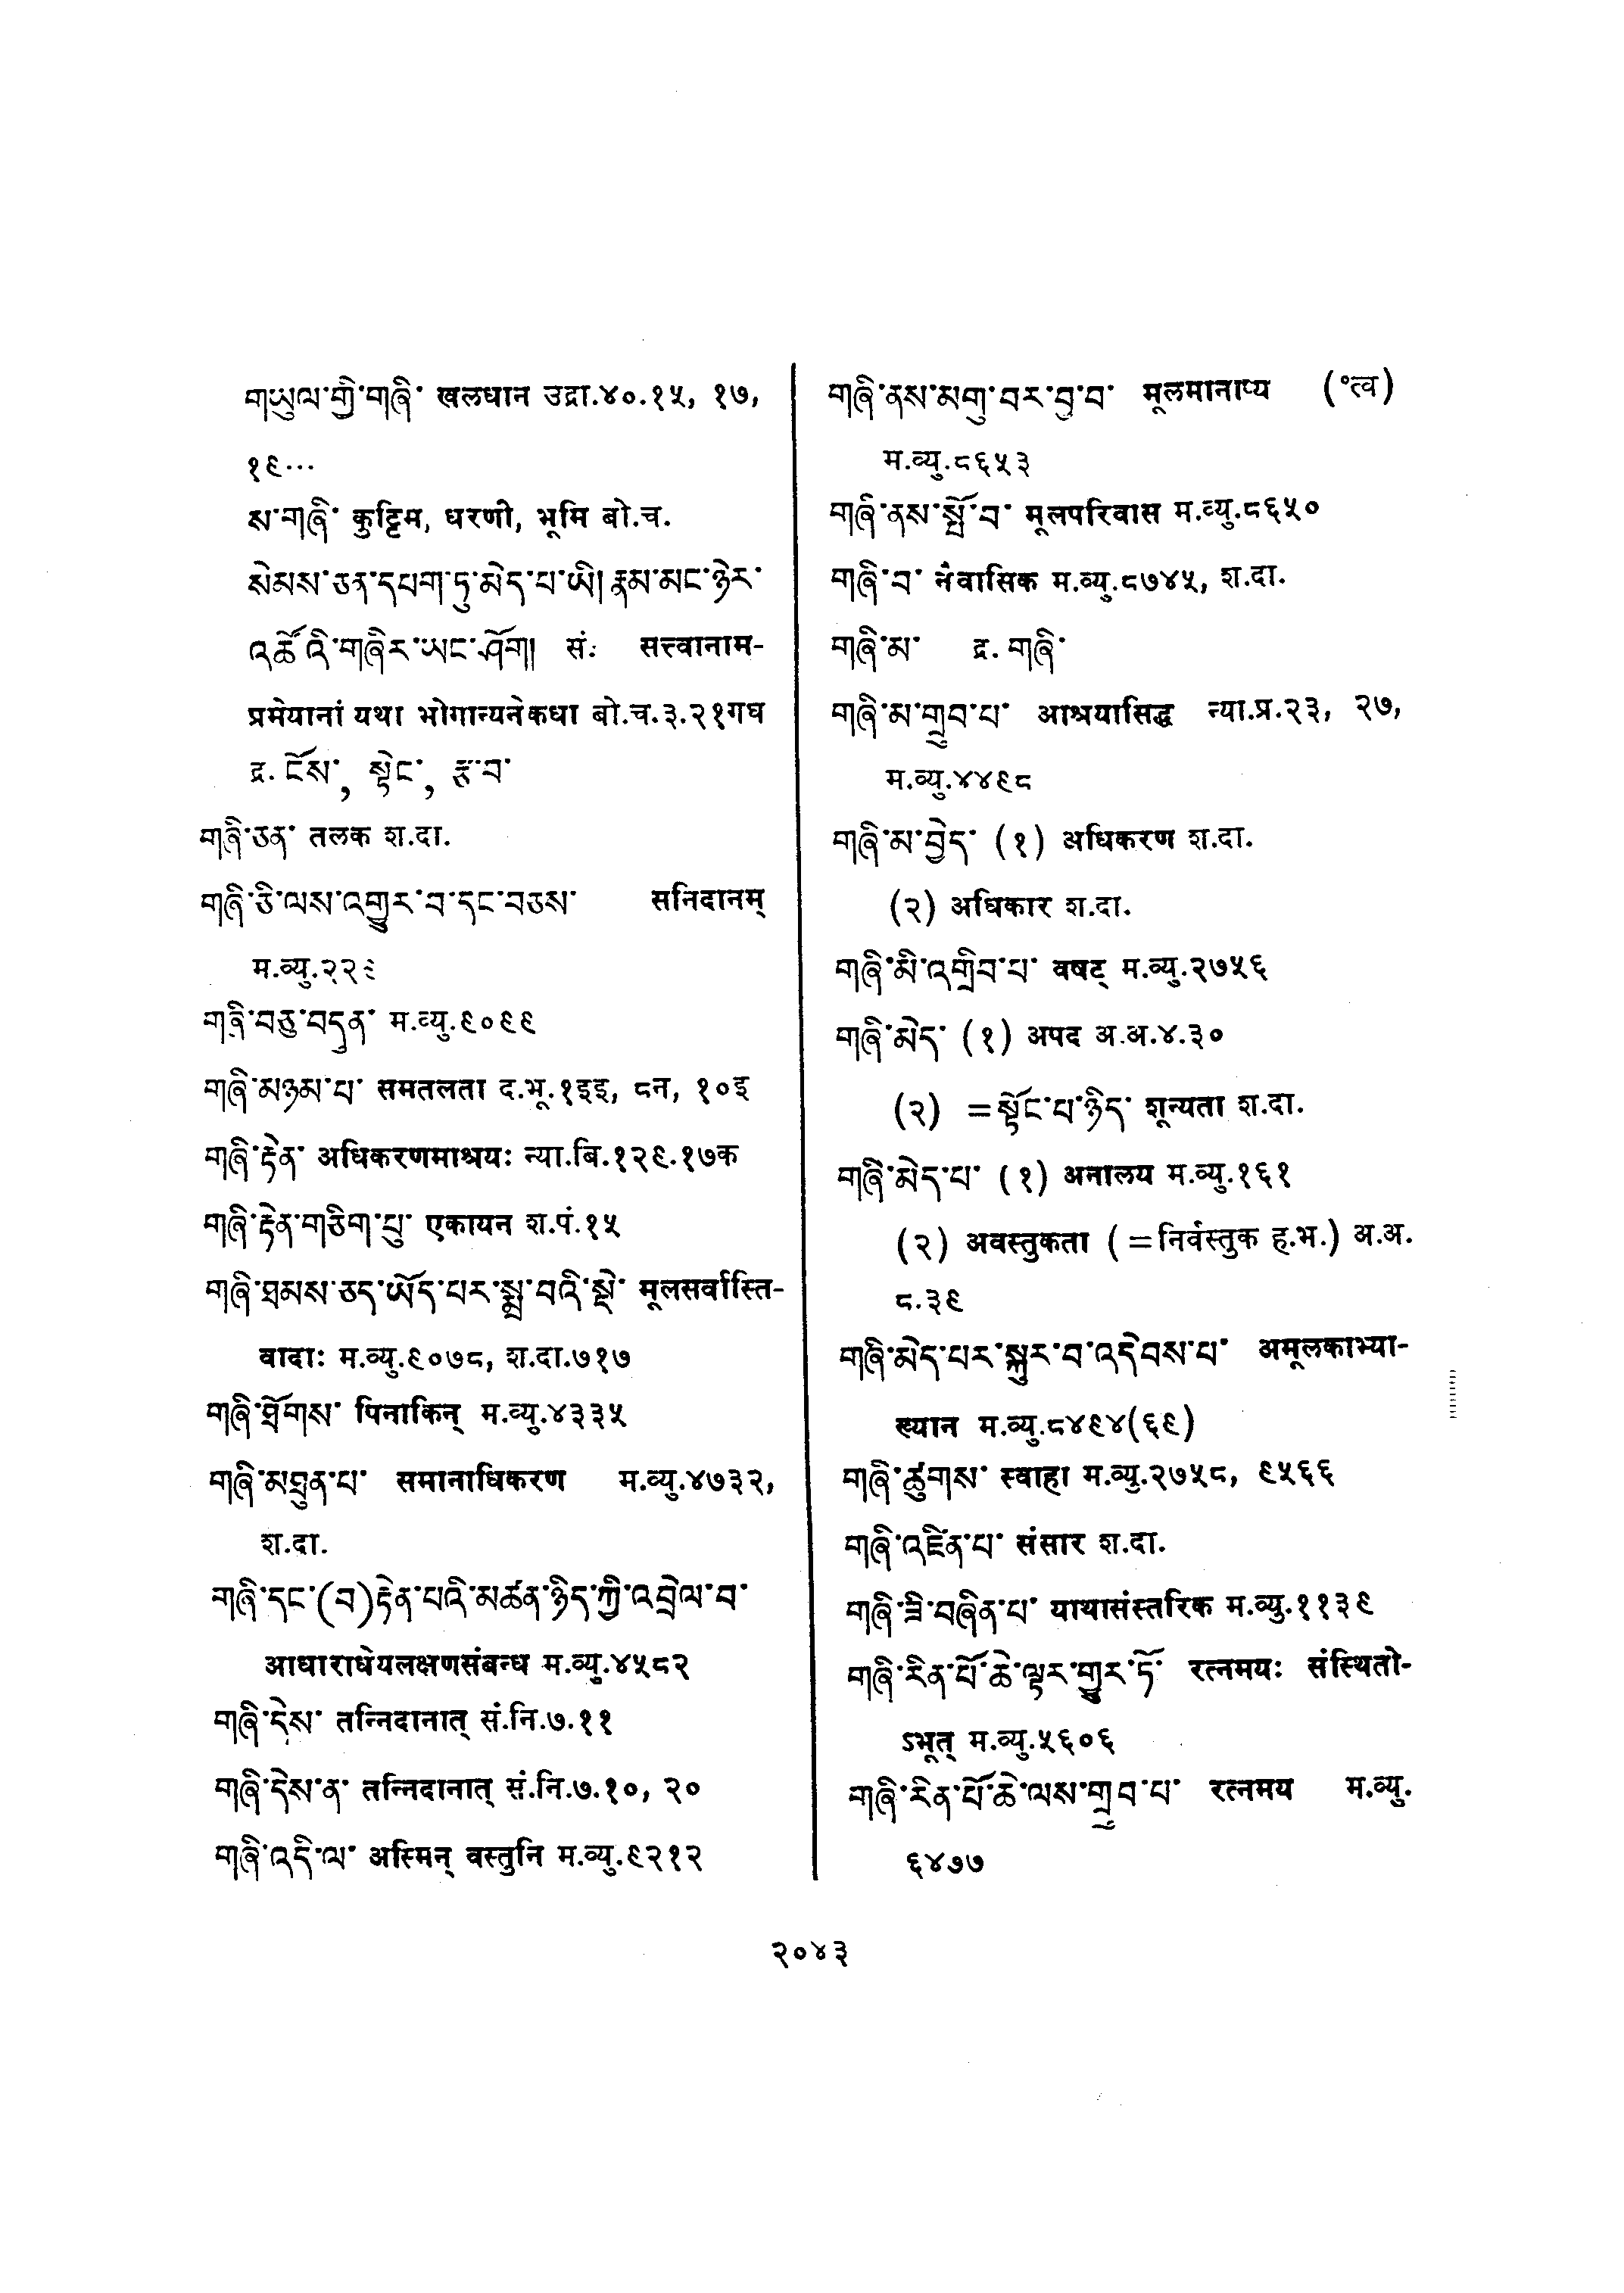 གཡུལ་གྱི་གཞི་ खलधान उद्रा.४०.१५, १७,
१९...
ས་གཞི་ कुट्टिम, धरणी, भूमि बो.च.
སེམས་ཅན་དཔག་ཏུ་མེད་པ་ཡི། རྣམ་མང་ཉེར་
འཚོའི་གཞིར་ཡང་ཤོག། सं: सत्त्वानाम-
प्रमेयानां यथा भोगान्यनेकधा बो.च.३.२१गघ
द्र. ངོས་, སྟེང་, རྩ་བ་
གཞི་ཅན་ तलक श.दा.
གཞི་ཅི་ལས་འགྱུར་བ་དང་བཅས་ सनिदानम्
म.व्यु.२२
གཞི་བཅུ་བདུན་ म.व्यु.९०९९
གཞི་མཉམ་པ་ समतलता द.भू.१इइ, ८न, १०इ
གཞི་རྟེན་ अधिकरणमाश्रयः न्या.बि.१२९.१७क
གཞི་རྟེན་གཅིག་པུ་ एकायन श.पं.१५
གཞི་ཐམས་ཅད་ཡོད་པར་སྨྲ་བའི་སྡེ་ मूलसर्वास्ति-
वादाः म.व्यु.९०७८, श.दा.७१७
གཞི་ཐོགས་ पिनाकिन् म.व्यु.४३३५
གཞི་མཐུན་པ་ समानाधिकरण म.व्यु.४७३२,
श.दा.
གཞི་དང་(བ)རྟེན་པའི་མཚན་ཉིད་ཀྱི་འབྲེལ་བ་
आधाराधेयलक्षणसंबन्ध म.व्यु.४५८२
གཞི་དེས་ तन्निदानात् सं.नि.७.११
གཞི་དེས་ན་ तन्निदानात् सं.नि.७.१०, २०
གཞི་འདི་ལ་ अस्मिन् वस्तुनि म.व्यु.९२१२
གཞི་ནས་མགུ་བར་བྱ་བ་ मूलमानाप्य (°त्व)
म.व्यु.८६५३
གཞི་ནས་སྤོ་བ་ मूलपरिवास म.व्यु.८६५०
གཞི་བ་ नैवासिक म.व्यु.८७४५, श.दा.
གཞི་མ་ द्र. གཞི་
གཞི་མ་གྲུབ་པ་ आश्रयासिद्ध न्या.प्र.२३, २७,
म.व्यु.४४९८
གཞི་མ་བྱེད་ (१) अधिकरण श.दा.
(२) अधिकार श.दा.
གཞི་མི་འགྲིབ་པ་ वषट् म.व्यु.२७५६
གཞི་མེད་ (१) अपद अ.अ.४.३०
(२) =སྟོང་པ་ཉིད་ शून्यता श.दा.
གཞི་མེད་པ་ (१) अनालय म.व्यु.१६१
(२) अवस्तुकता (=निर्वस्तुक ह.भ.) अ.अ.
८.३९
གཞི་མེད་པར་སྐུར་བ་འདེབས་པ་ अमूलकाभ्या-
ख्यान म.व्यु.८४९४(६९)
གཞི་ཚུགས་ स्वाहा म.व्यु.२७५८, ९५६६
གཞི་འཛིན་པ་ संसार श.दा.
གཞི་ཟི་བཞིན་པ་ याथासंस्तरिक म.व्यु.११३९
གཞི་རིན་པོ་ཆེ་ལྟར་གྱུར་ཏོ་ रत्नमयः संस्थितो-
ऽभूत् म.व्यु.५६०६
གཞི་རིན་པོ་ཆེ་ལས་གྲུབ་པ་ रत्नमय म.व्यु.
६४७७
२०४३